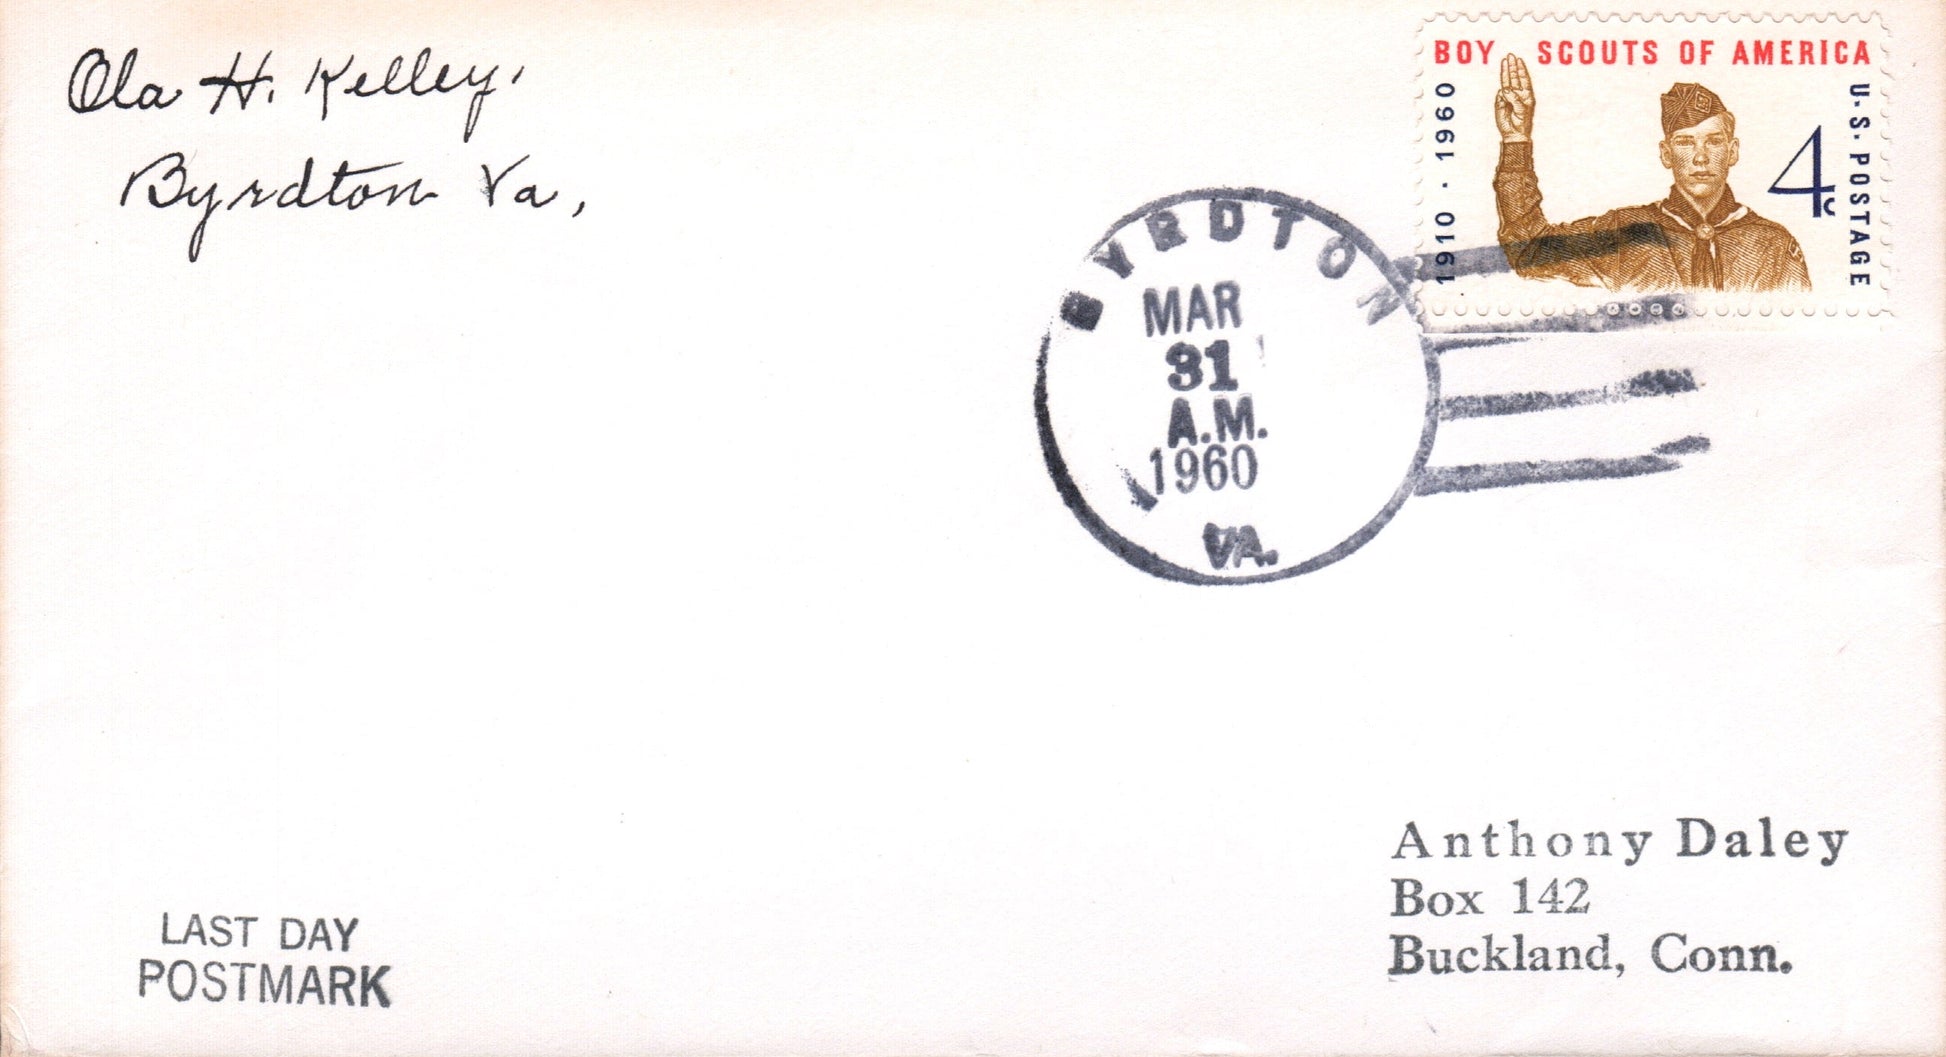 Ola H. Kelley,
Byrdton Va,
BOY SCOUTS OF AMERICA
1910 · 1960
4c
U.S. POSTAGE
BYRDTON
MAR
31
A.M.
1960
VA.
Anthony Daley
Box 142
Buckland, Conn.
LAST DAY
POSTMARK